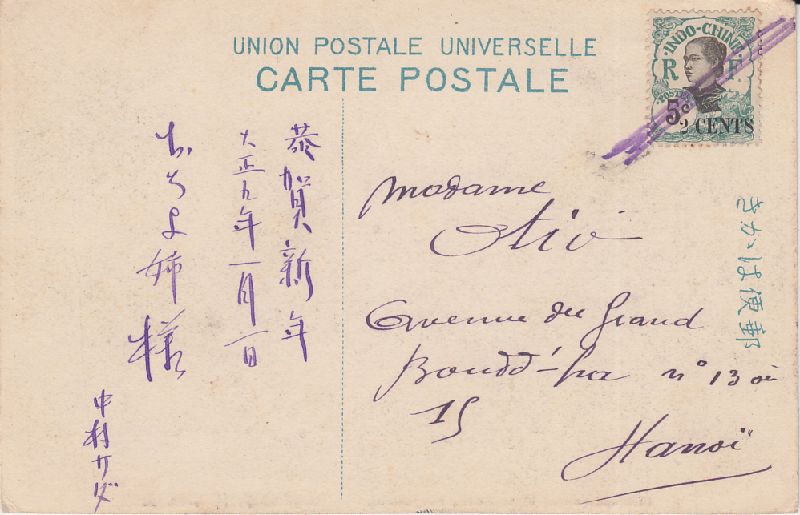 UNION POSTALE UNIVERSELLE
CARTE POSTALE
INDO-CHINE
R F
5c
2 CENTS
きかは便郵
恭賀新年
大正九年一月一日
おちよ姉様
中村
Madame
Otiô
Avenue du Grand
Bouddha n° 13 ou
15
Hanoï